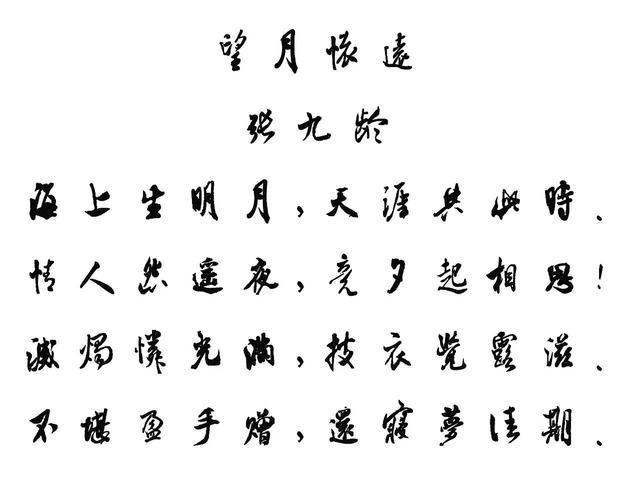 望月懷遠
张九龄
海上生明月，天涯共此時、
情人怨遥夜，竟夕起相思！
滅燭憐光满，披衣覺露滋、
不堪盈手赠，還寢夢佳期、